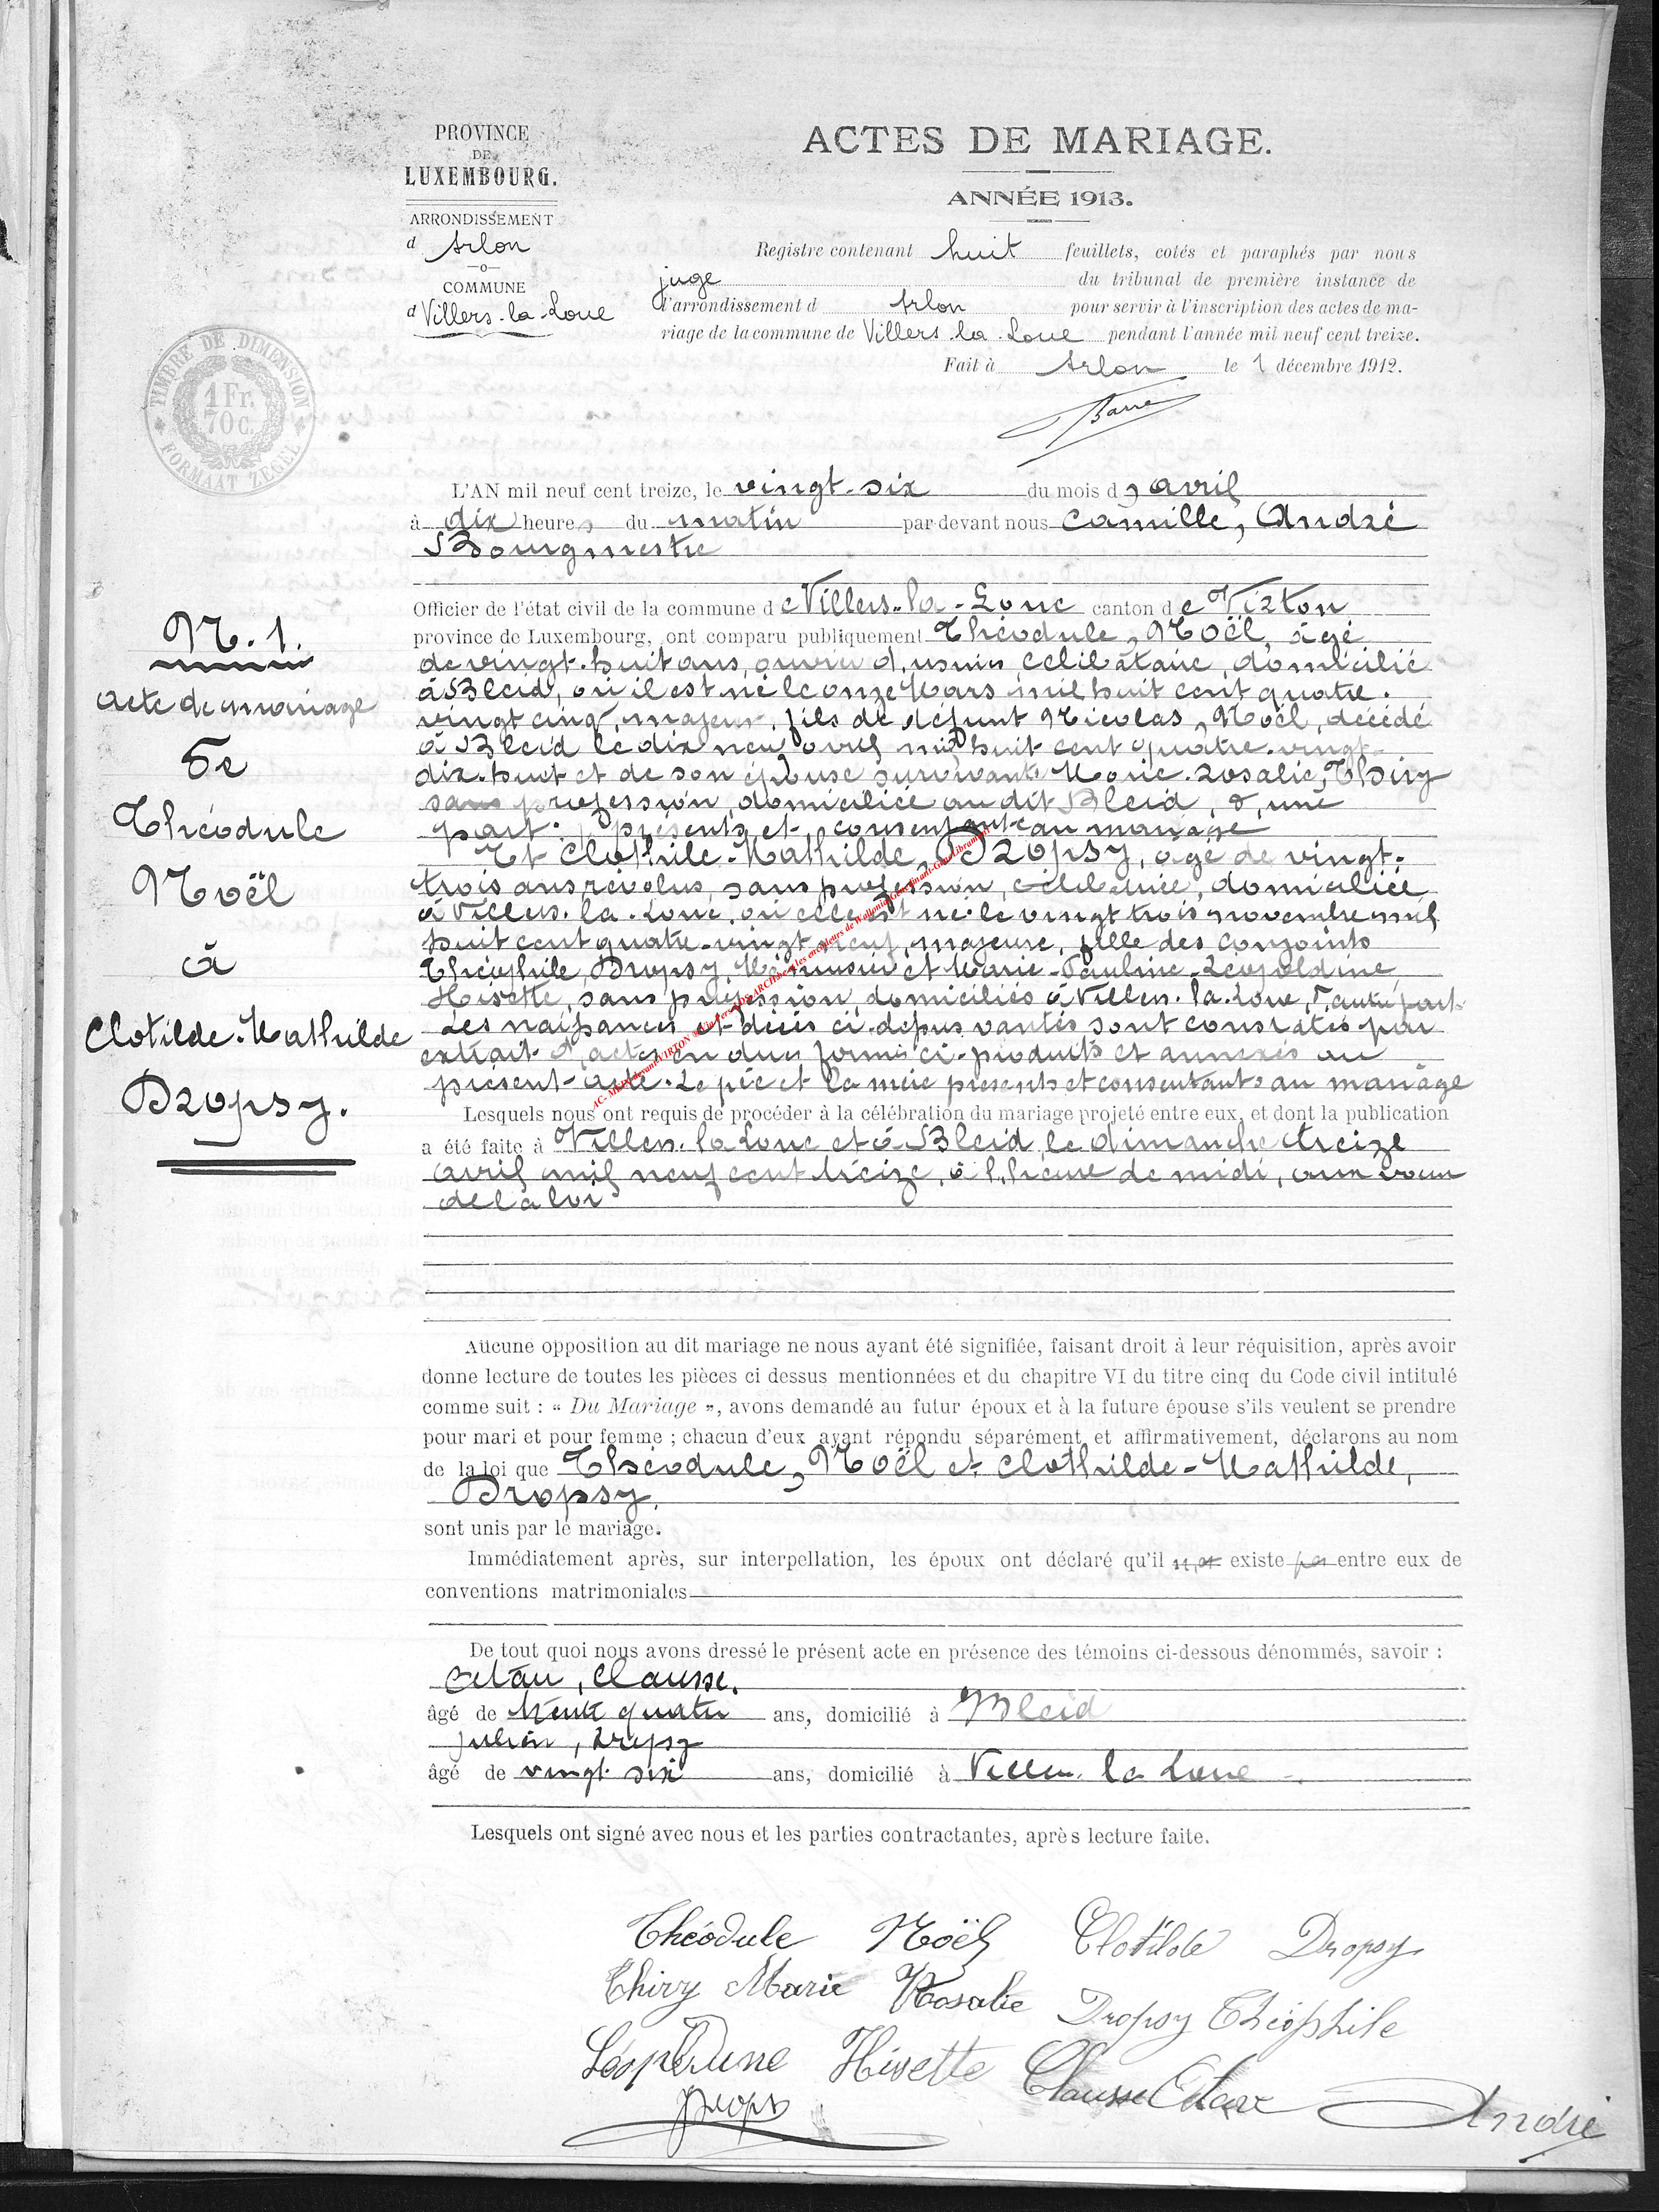 PROVINCE
DE
LUXEMBOURG.
ARRONDISSEMENT
d Arlon
COMMUNE
d Villers-la-Loue
ACTES DE MARIAGE.
ANNÉE 1913.
Registre contenant huit feuillets, cotés et paraphés par nous
juge du tribunal de première instance de
l'arrondissement d Arlon pour servir à l'inscription des actes de ma-
riage de la commune de Villers-la-Loue pendant l'année mil neuf cent treize.
Fait à Arlon le 1 décembre 1912.
TIMBRE DE DIMENSION
1 Fr.
70 c.
FORMAAT ZEGEL
N. 1.
acte de mariage
De
Théodule
Noël
à
Clotilde-Mathilde
Dropsy.
L'AN mil neuf cent treize, le vingt-six du mois d'avril
à dix heures du matin par devant nous Camille, André
Bourgmestre
Officier de l'état civil de la commune de Villers-la-Loue canton de Virton
province de Luxembourg, ont comparu publiquement Théodule, Noël, âgé
de vingt-huit ans, ouvrier d'usines, célibataire, domicilié
à Bleid, où il est né le onze Mars mil huit cent quatre-
vingt cinq, majeur, fils de défunt Nicolas, Noël, décédé
à Bleid le dix neuf avril mil huit cent quatre-vingt-
dix-huit et de son épouse survivante Marie-Rosalie, Thiry
sans profession, domiciliée au dit Bleid, d'une
part. présente et consentante au mariage
Et Clothilde-Mathilde, Dropsy, âgé de vingt-
trois ans révolus, sans profession, célibataire, domiciliée
à Villers-la-Loue, où elle est né le vingt trois novembre mil
huit cent quatre-vingt neuf, majeure, fille des conjoints
Théophile, Dropsy, Menuisier et Marie-Pauline-Léopoldine,
Hivette, sans profession, domiciliés à Villers-la-Loue, d'autre part
Les naissances et décès ci-dessus vantés sont constatés par
extrait d'actes en dues formes ci-produits et annexés au
présent-acte. Le père et la mère présents et consentants au mariage
Lesquels nous ont requis de procéder à la célébration du mariage projeté entre eux, et dont la publication
a été faite à Villers-la-Loue et à Bleid le dimanche treize
avril mil neuf cent treize, à l'heure de midi, aux vœux
de la loi
Aucune opposition au dit mariage ne nous ayant été signifiée, faisant droit à leur réquisition, après avoir
donne lecture de toutes les pièces ci dessus mentionnées et du chapitre VI du titre cinq du Code civil intitulé
comme suit : « Du Mariage », avons demandé au futur époux et à la future épouse s'ils veulent se prendre
pour mari et pour femme ; chacun d'eux ayant répondu séparément et affirmativement, déclarons au nom
de la loi que Théodule, Noël et Clothilde-Mathilde,
Dropsy.
sont unis par le mariage.
Immédiatement après, sur interpellation, les époux ont déclaré qu'il existe pas entre eux de
conventions matrimoniales
De tout quoi nous avons dressé le présent acte en présence des témoins ci-dessous dénommés, savoir :
Clausse.
âgé de trente quatre ans, domicilié à Bleid
Julien, Dropsy
âgé de vingt-six ans, domicilié à Villers-la-Loue
Lesquels ont signé avec nous et les parties contractantes, après lecture faite.
Théodule Noël Clotilde Dropsy
Thiry Marie Rosalie Dropsy Théophile
Léopoldine Hivette Clausse
Dropsy André